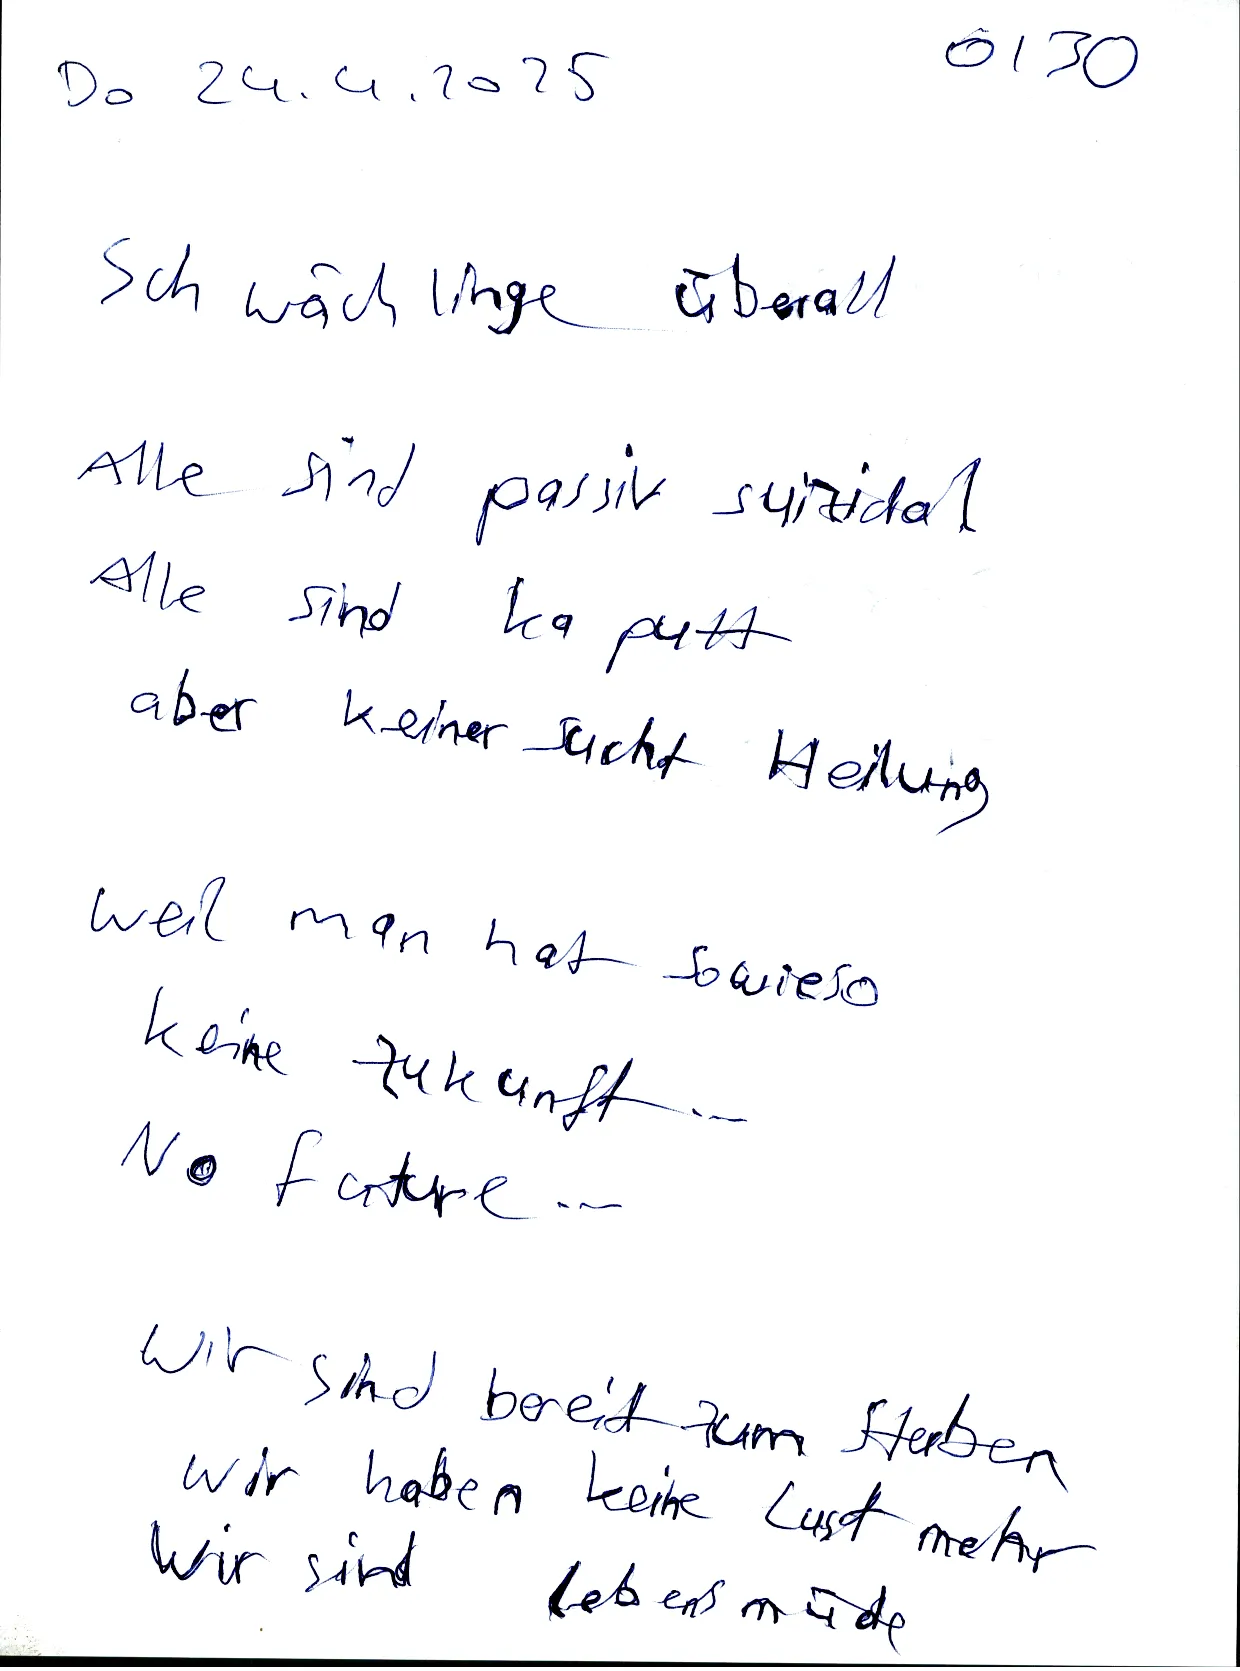 Do 24.4.2025 0130
Schwächlinge überall
Alle sind passiv suizidal
Alle sind kaputt
aber keiner sucht Heilung
weil man hat sowieso
keine Zukunft...
No future...
wir sind bereit zum Sterben
wir haben keine Lust mehr
wir sind lebensmüde